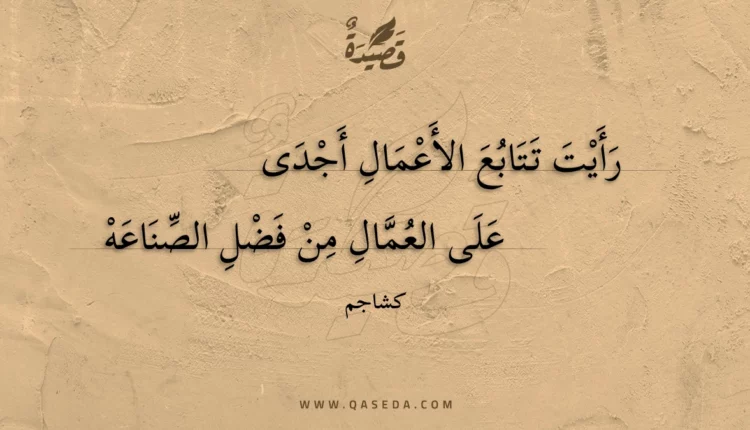 قَصِيْدَةٌ
رَأَيْتَ تَتَابُعَ الأَعْمَالِ أَجْدَى
عَلَى العُمَّالِ مِنْ فَضْلِ الصِّنَاعَهْ
كشاجم
WWW.QASEDA.COM